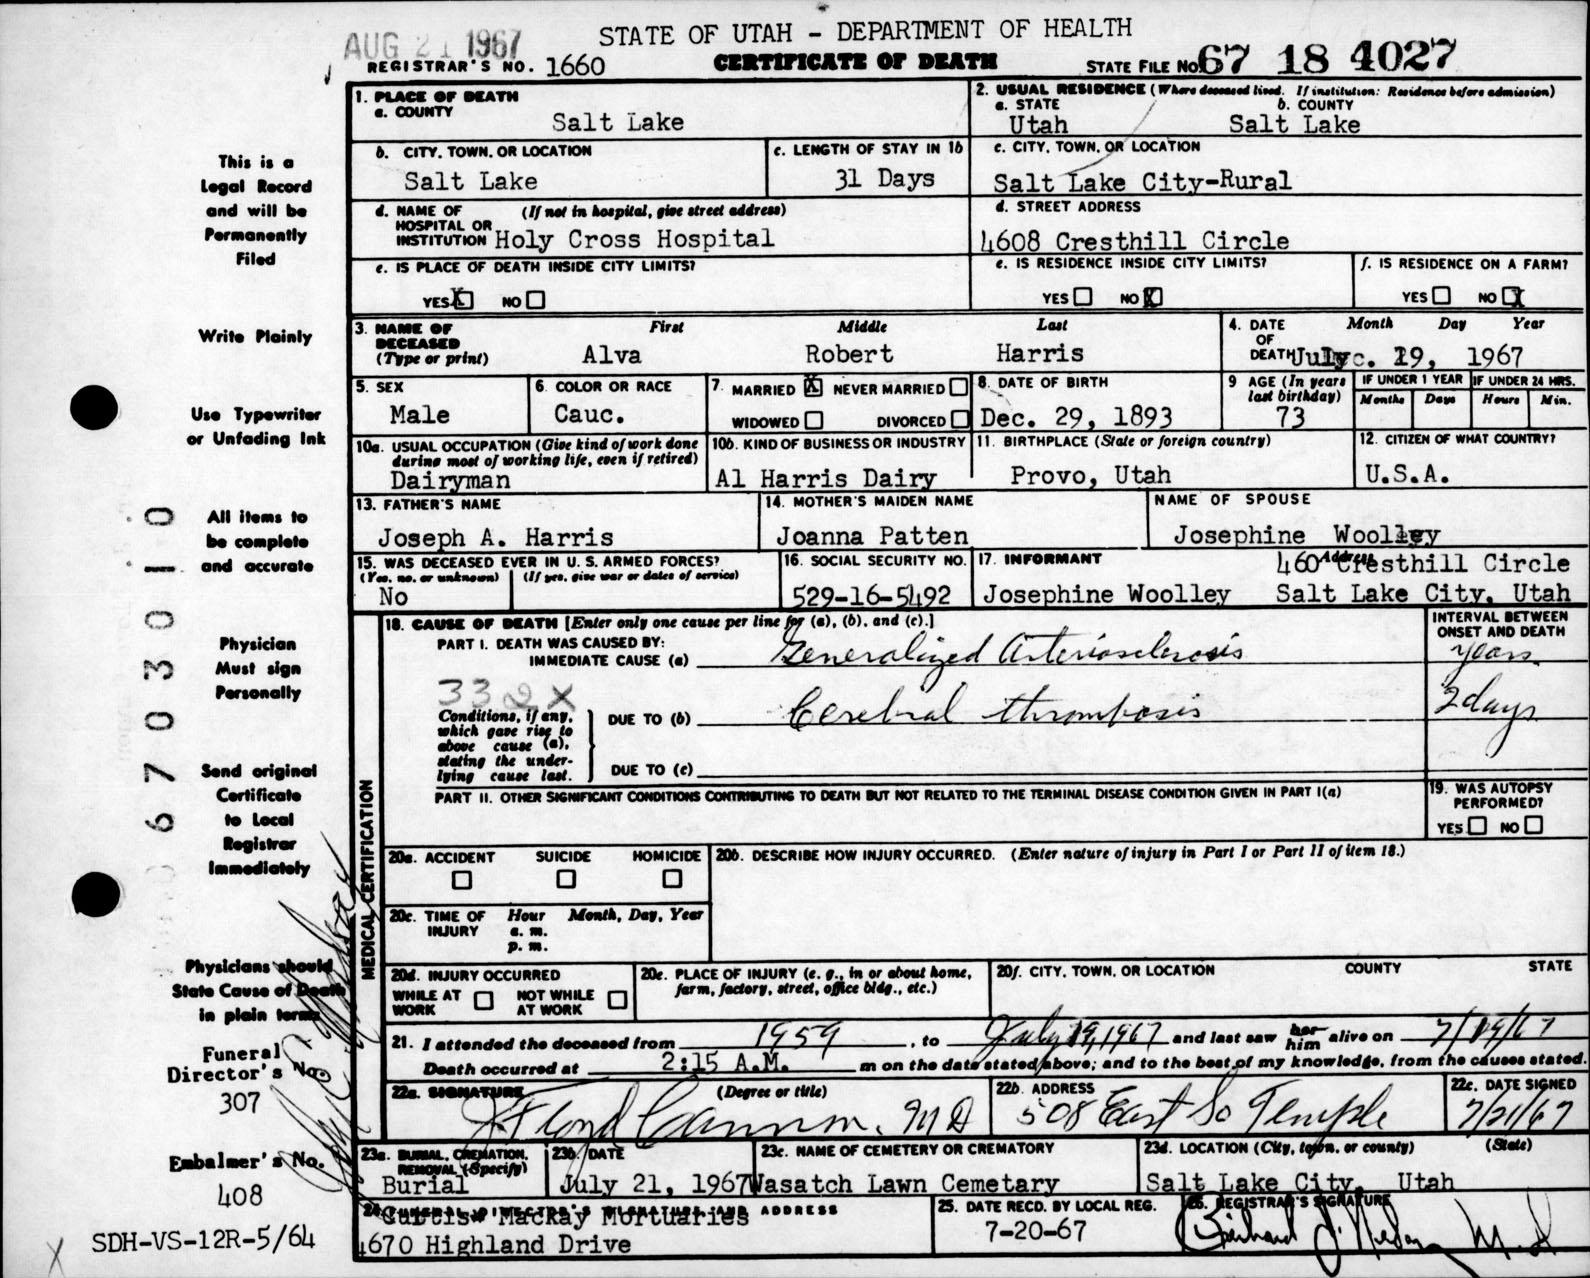 STATE OF UTAH - DEPARTMENT OF HEALTH
AUG 21 1967
REGISTRAR'S NO. 1660
CERTIFICATE OF DEATH
STATE FILE NO. 67 18 4027
1. PLACE OF DEATH
a. COUNTY
Salt Lake
2. USUAL RESIDENCE (Where deceased lived. If institution: Residence before admission)
a. STATE b. COUNTY
Utah Salt Lake
b. CITY, TOWN, OR LOCATION
Salt Lake
c. LENGTH OF STAY IN 1b
31 Days
c. CITY, TOWN, OR LOCATION
Salt Lake City-Rural
d. NAME OF HOSPITAL OR INSTITUTION (If not in hospital, give street address)
Holy Cross Hospital
d. STREET ADDRESS
4608 Cresthill Circle
e. IS PLACE OF DEATH INSIDE CITY LIMITS?
YES X NO
e. IS RESIDENCE INSIDE CITY LIMITS?
YES NO X
f. IS RESIDENCE ON A FARM?
YES NO X
3. NAME OF DECEASED (Type or print)
First Middle Last
Alva Robert Harris
4. DATE OF DEATH Month Day Year
July 19, 1967
5. SEX
Male
6. COLOR OR RACE
Cauc.
7. MARRIED X NEVER MARRIED
WIDOWED DIVORCED
8. DATE OF BIRTH
Dec. 29, 1893
9 AGE (In years last birthday)
73
IF UNDER 1 YEAR
Months Days
IF UNDER 24 HRS.
Hours Min.
10a. USUAL OCCUPATION (Give kind of work done during most of working life, even if retired)
Dairyman
10b. KIND OF BUSINESS OR INDUSTRY
Al Harris Dairy
11. BIRTHPLACE (State or foreign country)
Provo, Utah
12. CITIZEN OF WHAT COUNTRY?
U.S.A.
13. FATHER'S NAME
Joseph A. Harris
14. MOTHER'S MAIDEN NAME
Joanna Patten
NAME OF SPOUSE
Josephine Woolley
15. WAS DECEASED EVER IN U. S. ARMED FORCES?
(Yes, no, or unknown) (If yes, give war or dates of service)
No
16. SOCIAL SECURITY NO.
529-16-5492
17. INFORMANT
Josephine Woolley
Address
Cresthill Circle
Salt Lake City, Utah
MEDICAL CERTIFICATION
18. CAUSE OF DEATH [Enter only one cause per line for (a), (b), and (c).]
INTERVAL BETWEEN ONSET AND DEATH
PART I. DEATH WAS CAUSED BY:
IMMEDIATE CAUSE (a) Generalized Arteriosclerosis years.
332X
Conditions, if any, which gave rise to above cause (a), stating the underlying cause last.
DUE TO (b) Cerebral thrombosis 2 days
DUE TO (c)
PART II. OTHER SIGNIFICANT CONDITIONS CONTRIBUTING TO DEATH BUT NOT RELATED TO THE TERMINAL DISEASE CONDITION GIVEN IN PART I(a)
19. WAS AUTOPSY PERFORMED?
YES NO
20a. ACCIDENT SUICIDE HOMICIDE
20b. DESCRIBE HOW INJURY OCCURRED. (Enter nature of injury in Part I or Part II of item 18.)
20c. TIME OF INJURY Hour Month, Day, Year
a. m.
p. m.
20d. INJURY OCCURRED
WHILE AT WORK NOT WHILE AT WORK
20e. PLACE OF INJURY (e. g., in or about home, farm, factory, street, office bldg., etc.)
20f. CITY, TOWN, OR LOCATION COUNTY STATE
21. I attended the deceased from 1959, to July 19, 1967 and last saw her him alive on 7/19/67
Death occurred at 2:15 A.M. m on the date stated above; and to the best of my knowledge, from the causes stated.
22a. SIGNATURE (Degree or title)
J Floyd Cannon, M D
22b. ADDRESS
508 East So Temple
22c. DATE SIGNED
7/21/67
23a. BURIAL, CREMATION, REMOVAL (Specify)
Burial
23b. DATE
July 21, 1967
23c. NAME OF CEMETERY OR CREMATORY
Wasatch Lawn Cemetary
23d. LOCATION (City, town, or county) (State)
Salt Lake City, Utah
24. FUNERAL DIRECTOR'S SIGNATURE AND ADDRESS
Mackay Mortuaries
4670 Highland Drive
25. DATE RECD. BY LOCAL REG.
7-20-67
26. REGISTRAR'S SIGNATURE
M.D.
This is a
Legal Record
and will be
Permanently
Filed
Write Plainly
Use Typewriter
or Unfading Ink
All items to
be complete
and accurate
Physician
Must sign
Personally
Send original
Certificate
to Local
Registrar
Immediately
Physicians should
State Cause of Death
in plain terms
Funeral
Director's No.
307
Embalmer's No.
408
SDH-VS-12R-5/64
6703010